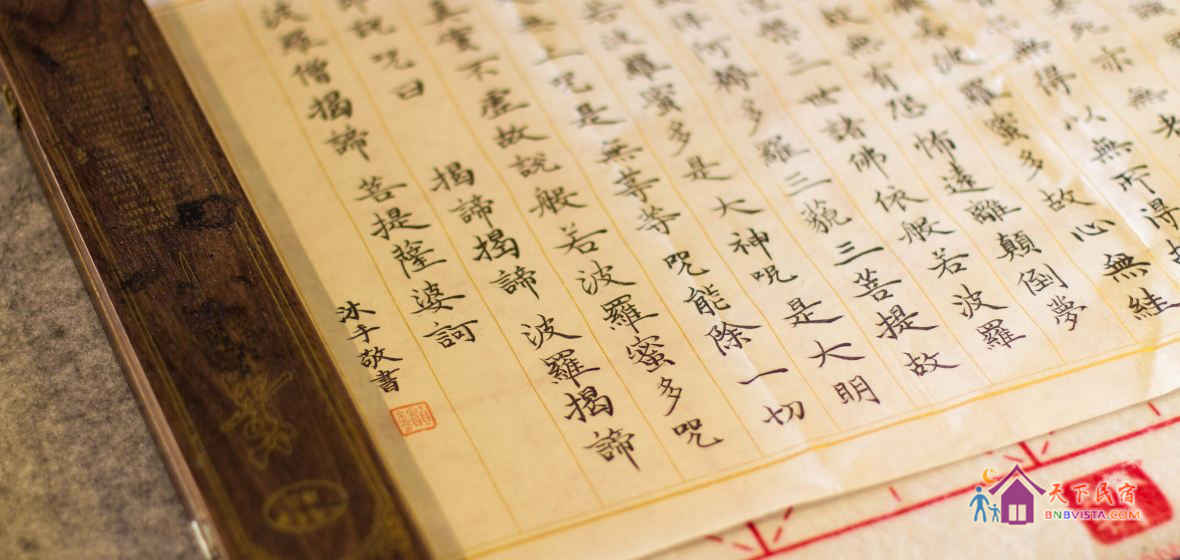 死亦無老
無得以無所得故
波羅蜜多故心無絓
故無有恐怖遠離顛倒夢
槃三世諸佛依般若波羅
阿耨多羅三藐三菩提故
若波羅蜜多是大神咒是大明
無上咒是無等等咒能除一切
真實不虛故說般若波羅蜜多咒
說咒曰 揭諦揭諦 波羅揭諦
波羅僧揭諦 菩提薩婆訶
沐手敬書
天下民宿
BNBVISTA.COM